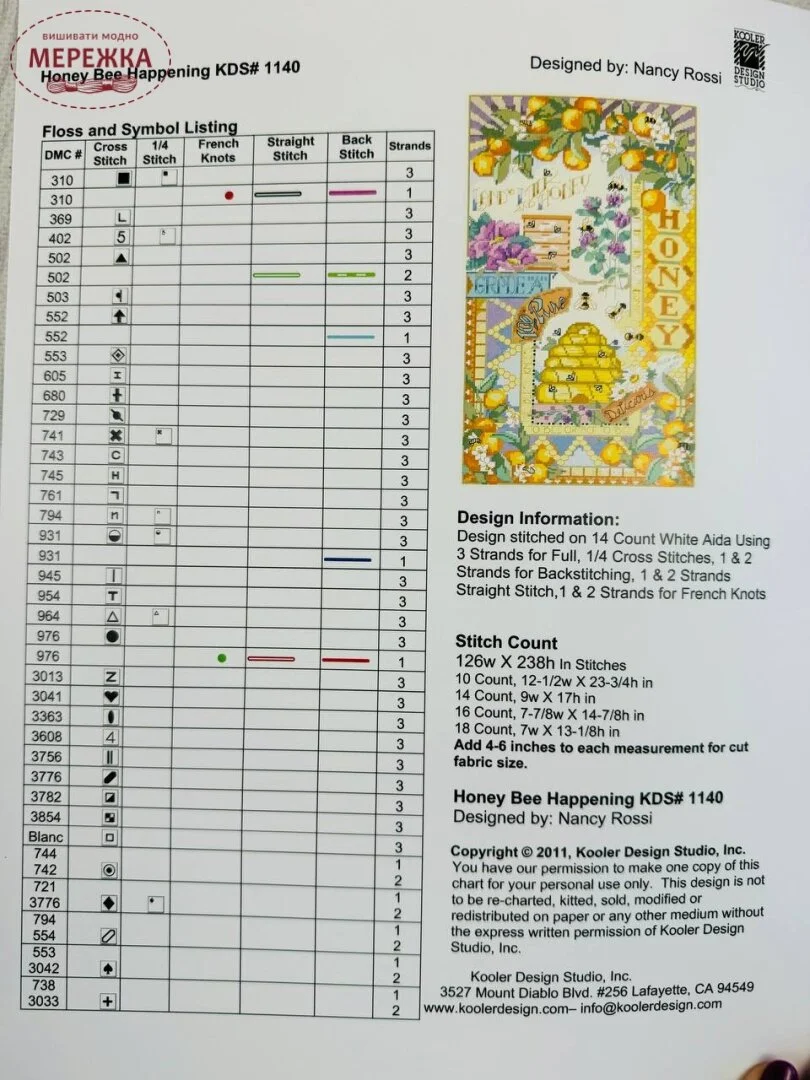 вишивати модно
МЕРЕЖКА
Honey Bee Happening KDS# 1140
Designed by: Nancy Rossi
KOOLER
DESIGN
STUDIO
Floss and Symbol Listing
DMC # Cross Stitch 1/4 Stitch French Knots Straight Stitch Back Stitch Strands
310 3
310 1
369 L 3
402 5 3
502 3
502 2
503 3
552 3
552 1
553 3
605 3
680 3
729 3
741 3
743 C 3
745 H 3
761 3
794 n 3
931 3
931 1
945 3
954 T 3
964 3
976 3
976 1
3013 Z 3
3041 3
3363 3
3608 4 3
3756 3
3776 3
3782 3
3854 3
Blanc 3
744 1
742 2
721 1
3776 2
794 1
554 2
553 1
3042 2
738 1
3033 2
HONEY
GRADE "A"
Pure
Delicious
Design Information:
Design stitched on 14 Count White Aida Using
3 Strands for Full, 1/4 Cross Stitches, 1 & 2
Strands for Backstitching, 1 & 2 Strands
Straight Stitch,1 & 2 Strands for French Knots
Stitch Count
126w X 238h In Stitches
10 Count, 12-1/2w X 23-3/4h in
14 Count, 9w X 17h in
16 Count, 7-7/8w X 14-7/8h in
18 Count, 7w X 13-1/8h in
Add 4-6 inches to each measurement for cut
fabric size.
Honey Bee Happening KDS# 1140
Designed by: Nancy Rossi
Copyright © 2011, Kooler Design Studio, Inc.
You have our permission to make one copy of this
chart for your personal use only. This design is not
to be re-charted, kitted, sold, modified or
redistributed on paper or any other medium without
the express written permission of Kooler Design
Studio, Inc.
Kooler Design Studio, Inc.
3527 Mount Diablo Blvd. #256 Lafayette, CA 94549
www.koolerdesign.com– info@koolerdesign.com